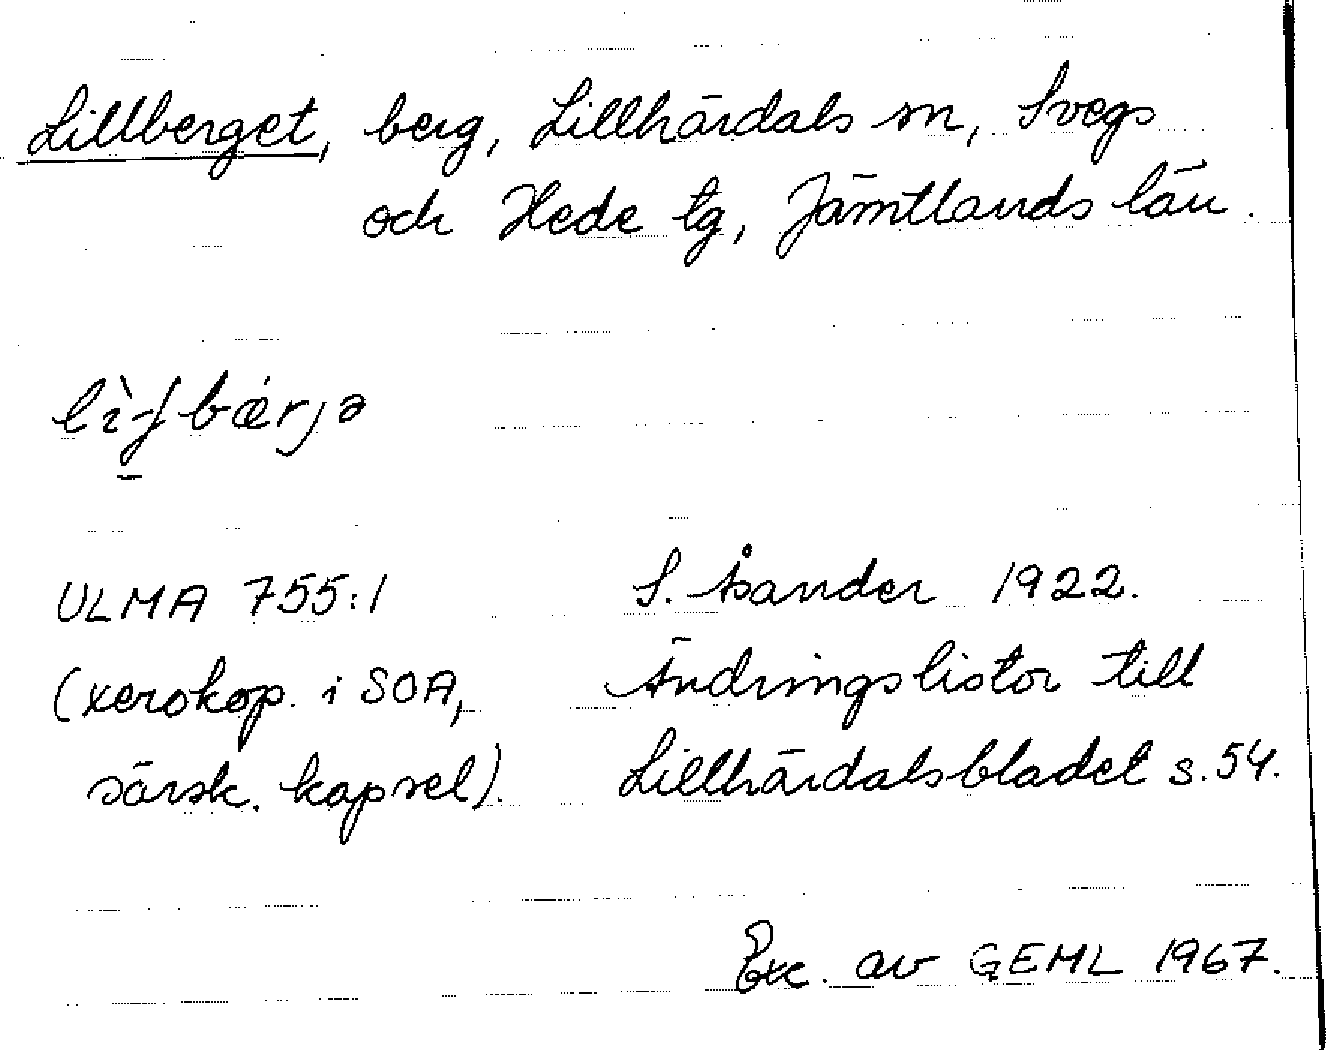 Lillberget, berg, Lillhärdals sn, Svegs
och Hede tg, Jämtlands län.
ULMA 755:1 S. Åsander 1922.
(xerokop. i SOA, Ändringslistor till
särsk. kapsel). Lillhärdalsbladet s. 54.
Exc. av GEML 1967.